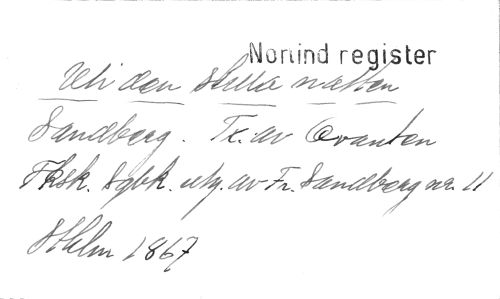 Norlind register
Uti den stilla natten
Sandberg. Tx. av Qvanten
Fhsk. Sgbk. utg. av Fr. Sandberg nr. 11
Sthlm 1867